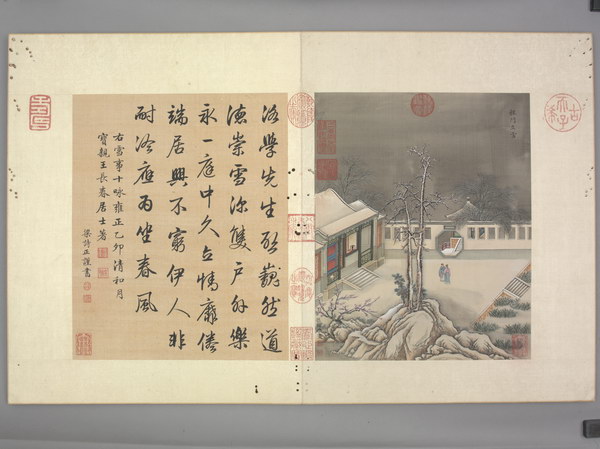 程門立雪
洛學先生啟巍然道
德崇雪深雙戶外樂
永一庭中久立情靡倦
端居興不窮伊人非
耐冷應為坐春風
右雪事十詠雍正乙卯清和月
寶親王長春居士著
梁詩正謹書